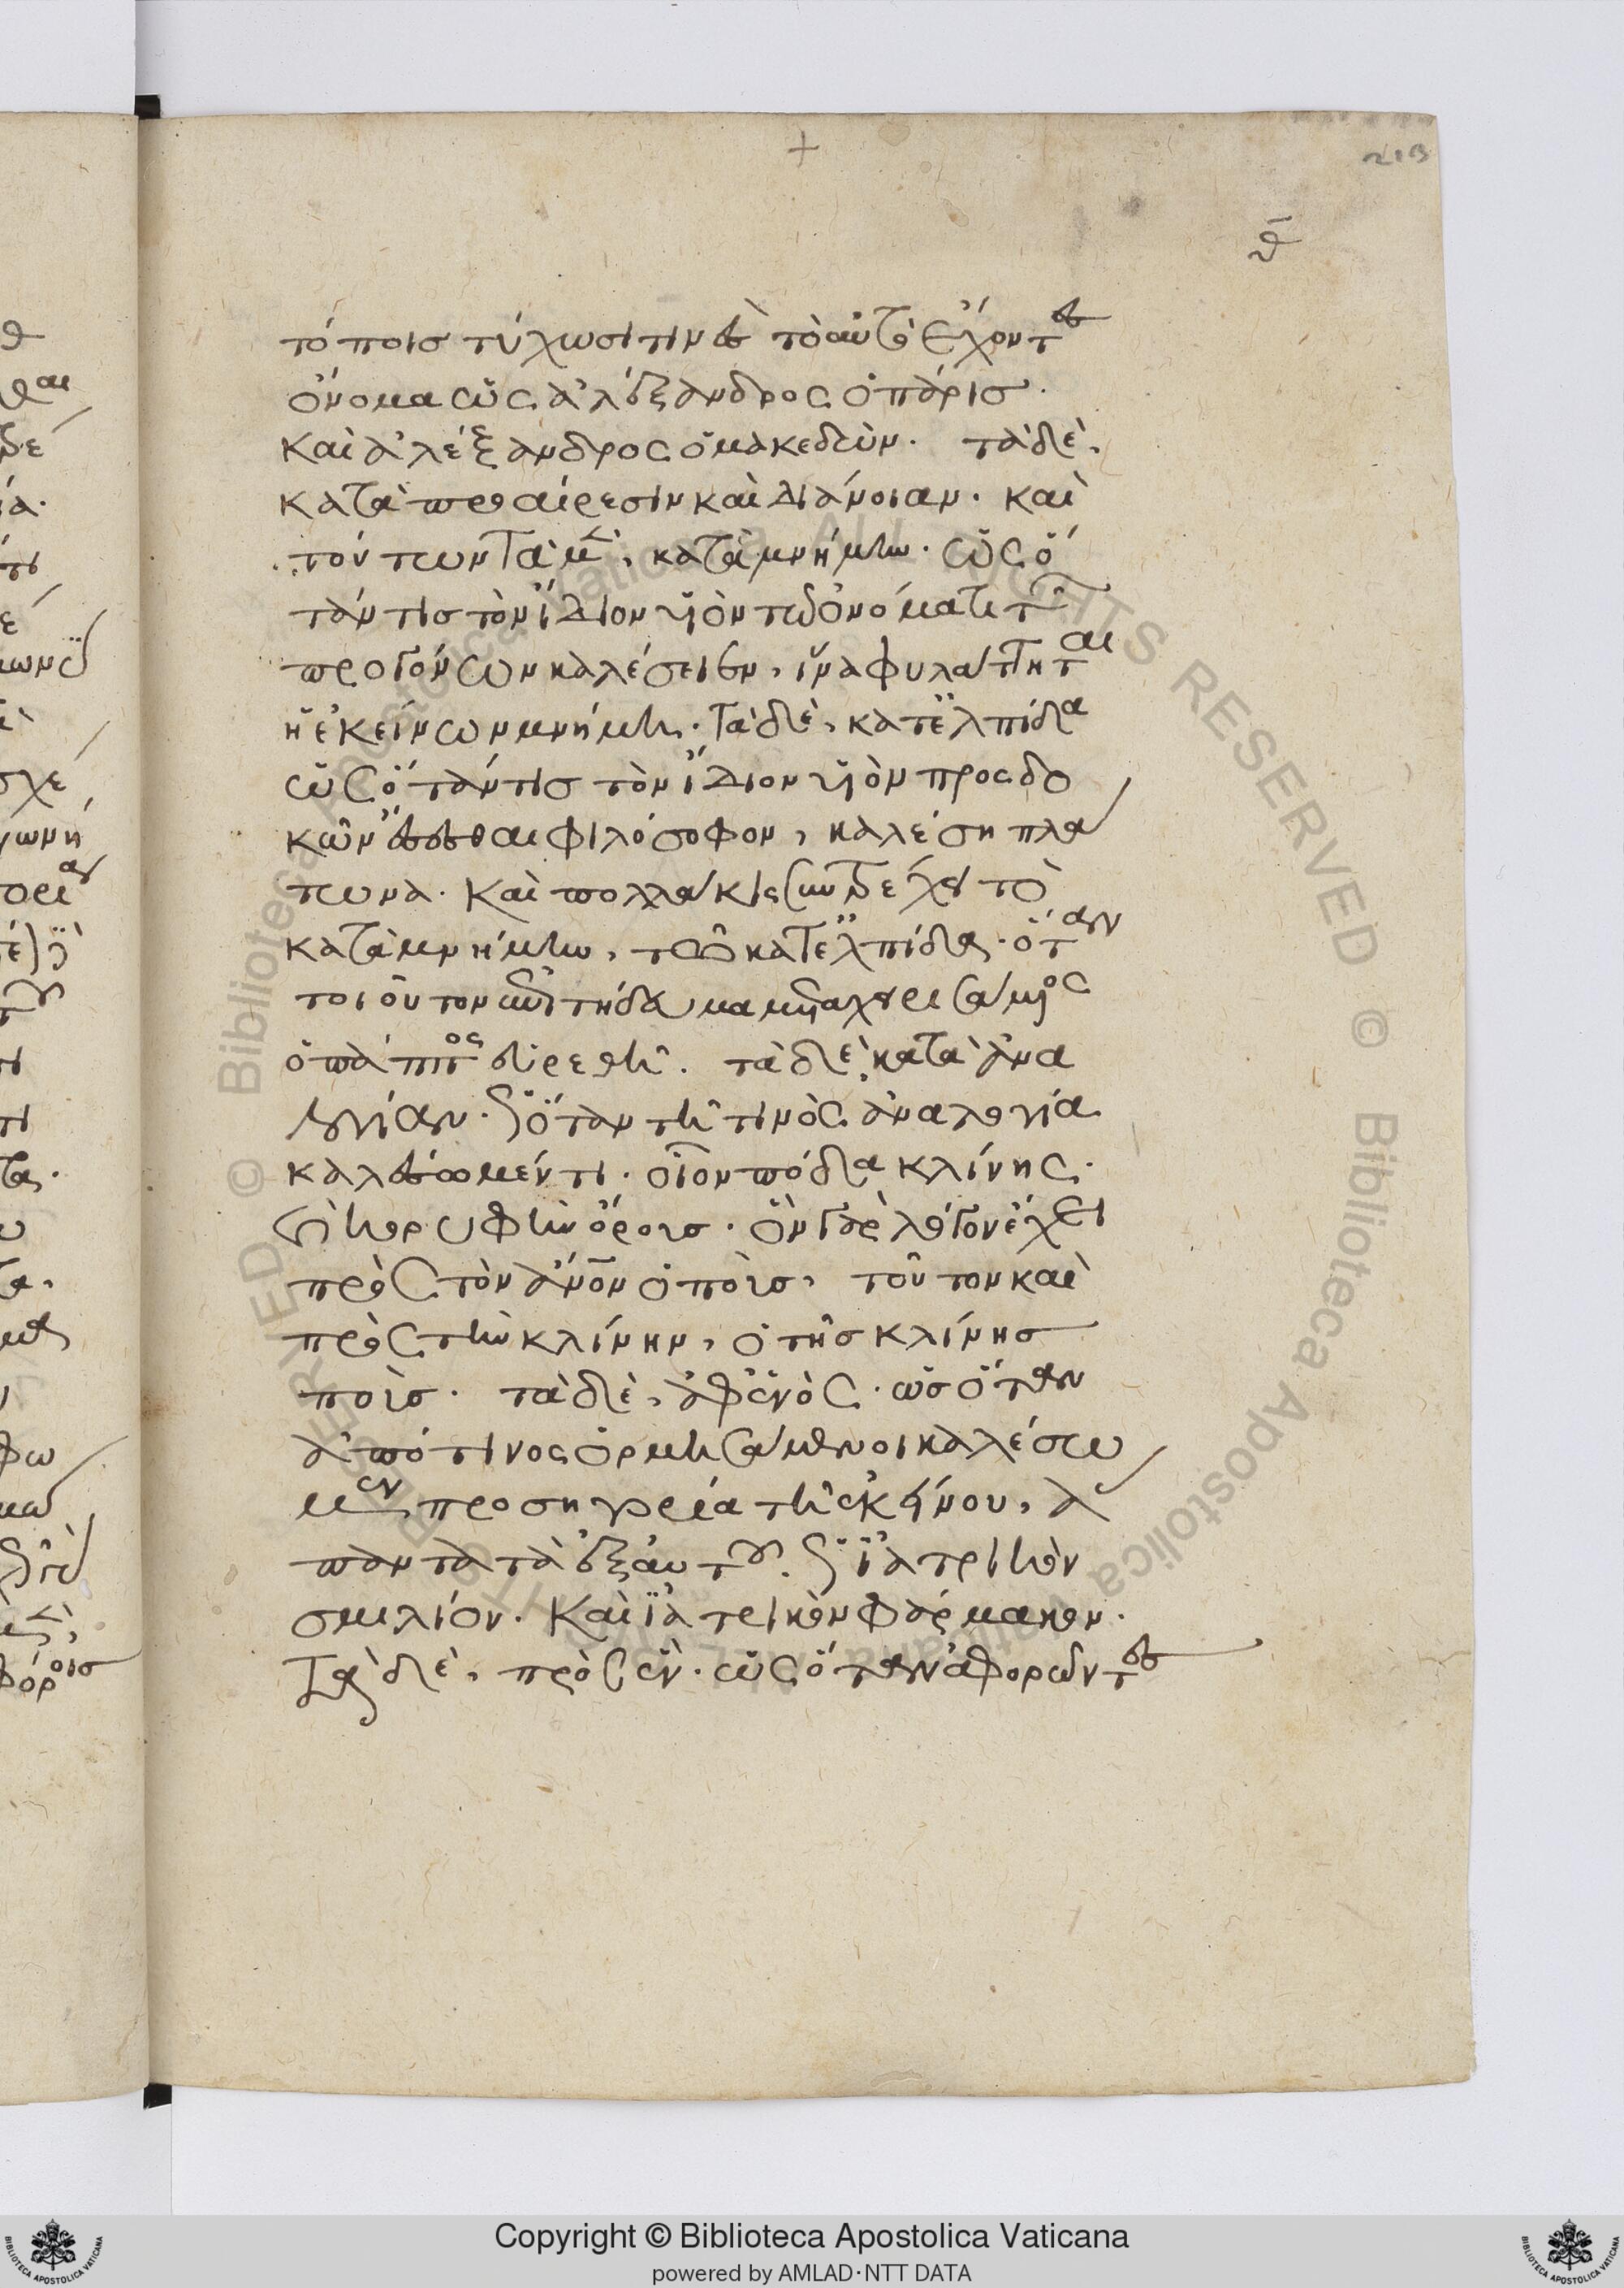 213
θ̅
τόποις τύχωσί τινες τὸ αὐτὸ ἔχοντες
ὄνομα ὡς ἀλέξανδρος ὁ πάρις.
καὶ ἀλέξανδρος ὁ μακεδών. τὰ δὲ,
κατὰ προαίρεσιν καὶ διάνοιαν. καὶ
τούτων τὰ μὲν, κατὰ μνήμην. ὡς ὅ
ταν τις τὸν ἴδιον υἱὸν τῷ ὀνόματι τῶν
προγόνων καλέσειεν, ἵνα φυλάττηται
ἡ ἐκείνων μνήμη. τὰ δὲ, κατ' ἐλπίδα
ὡς ὅταν τις τὸν ἴδιον υἱὸν προσδο
κῶν ἔσεσθαι φιλόσοφον, καλέσῃ πλά
τωνα. καὶ πολλάκις συντρέχει τὸ
κατὰ μνήμην, τῷ κατ' ἐλπίδα. ὅταν
τοιοῦτον
ὁ πάππος εὑρεθῇ. τὰ δὲ, κατὰ ἀνα
λογίαν. ὡς ὅταν τῇ τινὸς ἀναλογίᾳ
καλέσωμέν τι. οἷον πόδα κλίνης.
ἢ κορυφὴν ὄρους. ὃν γὰρ λόγον ἔχει
πρὸς τὸν ἄνον ὁ ποὺς, τοῦτον καὶ
πρὸς τὴν κλίνην, ὁ τῆς κλίνης
ποὺς. τὰ δὲ, ἀφ' ἑνὸς. ὡς ὅταν
ἀπό τινος ὁρμησάμενοι καλέσω
μεν προσηγορίᾳ τῇ ἐκείνου, ἅ
παντα τὰ ἐξ αὐτοῦ. ὡς ἰατρικὸν
σμιλίον. καὶ ἰατρικὸν φάρμακον.
τὰ δὲ, πρὸς ἕν. ὡς ὅταν ἀφορῶντες
Copyright © Biblioteca Apostolica Vaticana
powered by AMLAD·NTT DATA